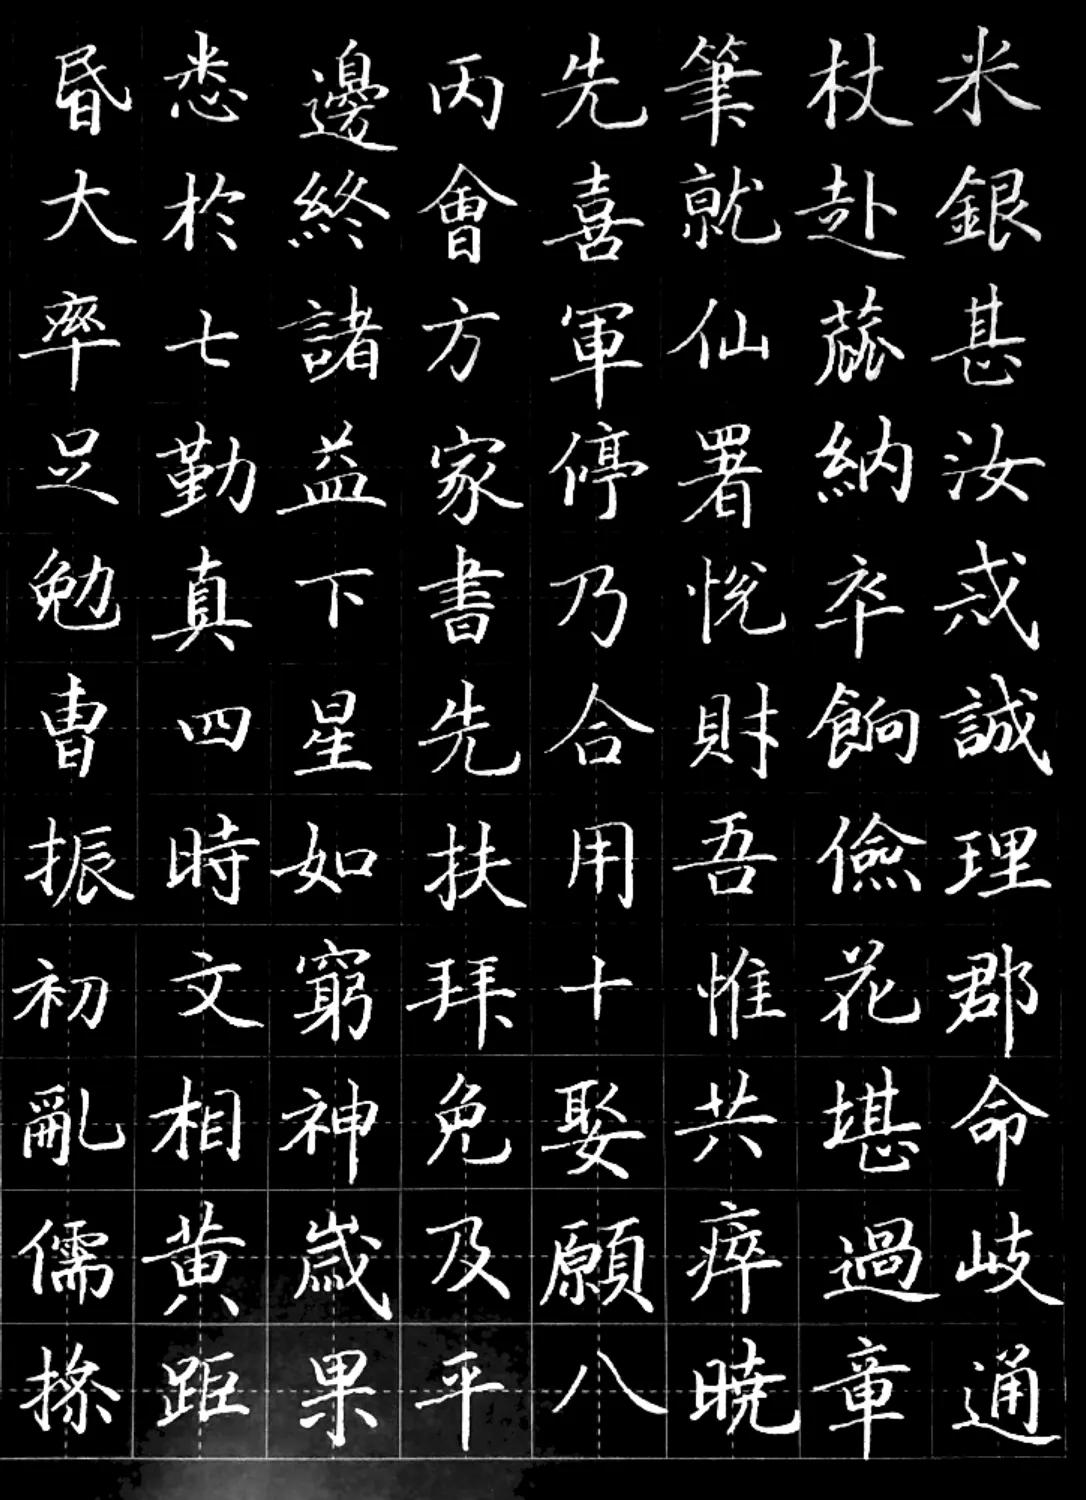 米銀甚汝忒誠理郡命歧通
杖赴蔬納卒餉儉花堪過章
筆就仙署悅財吾惟共瘁曉
先喜軍停乃合用十娶願八
丙會方家書先扶拜免及平
邊終諸益下星如窮神歲果
悉於七勤真四時文相黃距
昏大率足勉曹振初亂儒採